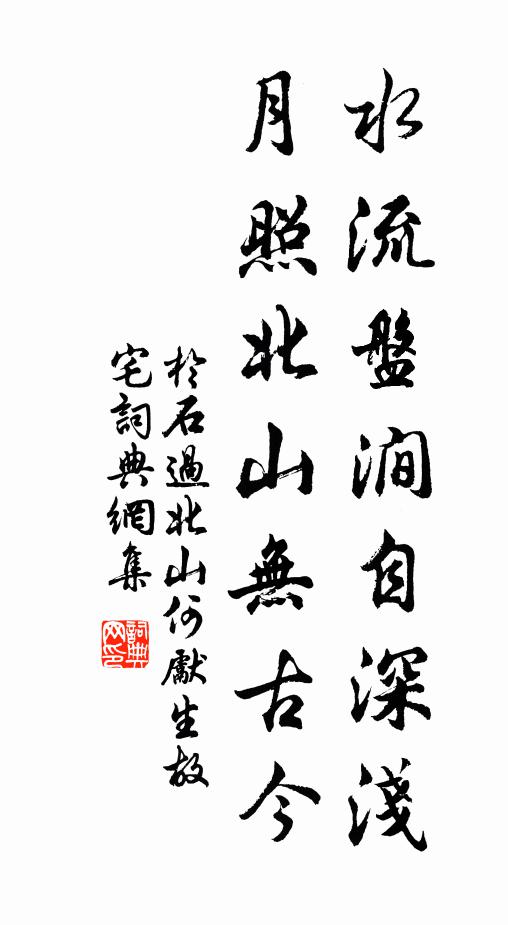 水流盤澗自深淺
月照北山無古今
於石過北山何獻生故
宅詞典網集
詞典网印